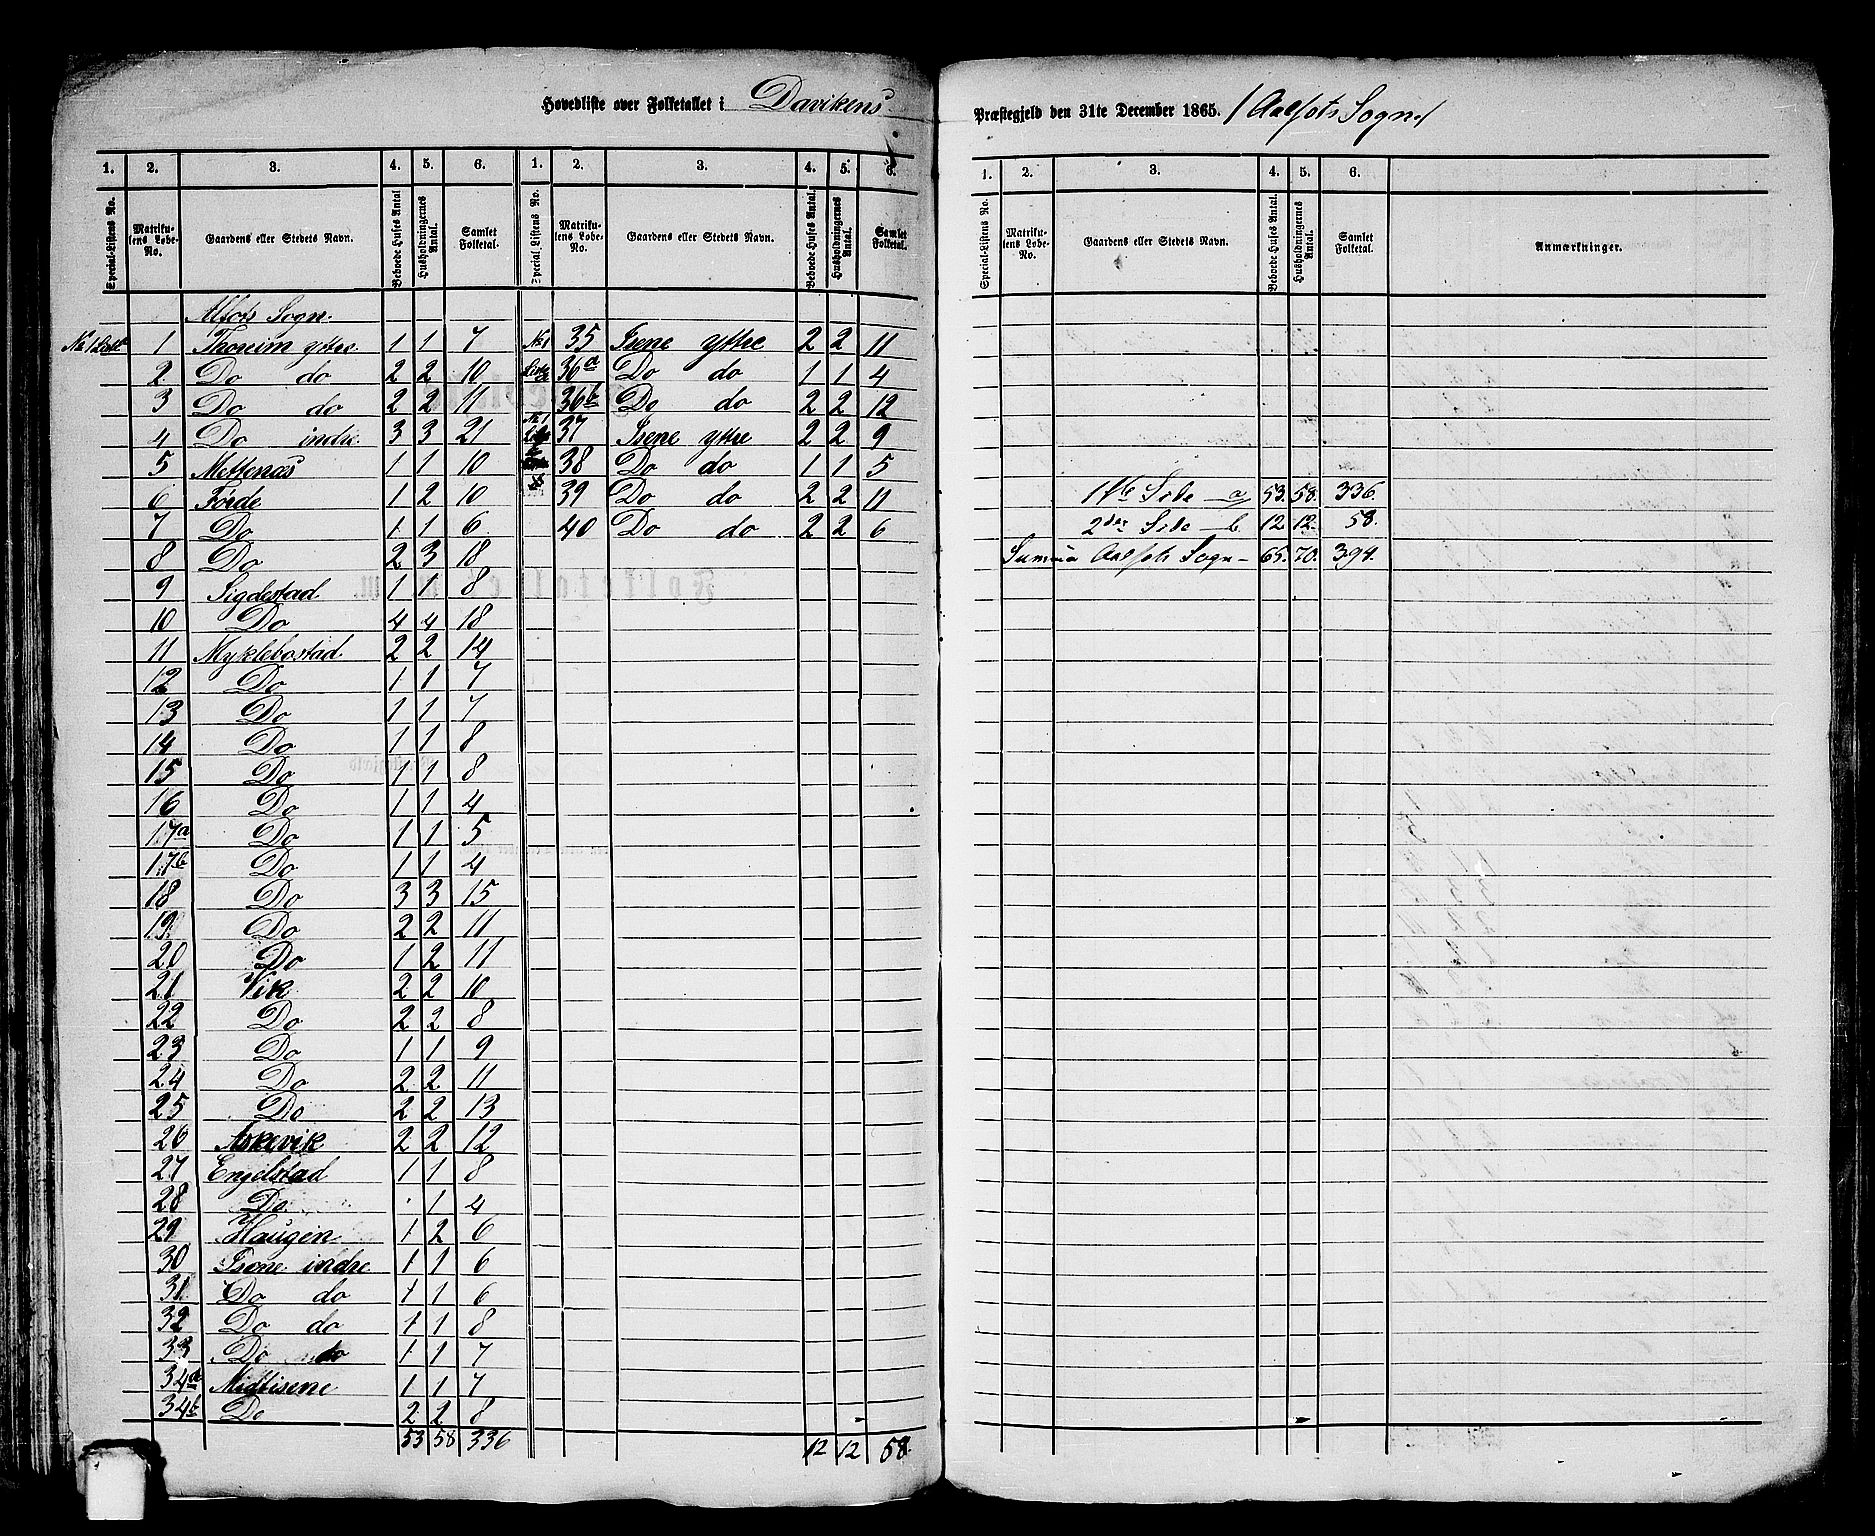 Hovedliste over Folketallet i Davikens
1. 2. 3. 4. 5. 6. 1. 2. 3. 4. 5. 6.
Special-Listens No. Matrikulens Løbe-No. Gaardens eller Stedets Navn. Beboede Huses Antal Husholdningernes Antal. Samlet Folketal. Special Listens No. Matrikulens Løbe-No. Gaardens eller Stedets Navn. Beboede Huses Antal. Husholdningernes Antal. Samlet Folketal.
Alfots Sogn.
1 Thoreim yttre 1 1 7 No 1 35 Isene yttre 2 2 11
2 Do do 2 2 10 36a Do do 1 1 4
3 Do do 2 2 11 36b Do do 2 2 12
4 Do indre 3 3 21 No 1 37 Isene yttre 2 2 9
5 Mettenæs 1 1 10 38 Do do 1 1 5
6 Förde 1 2 10 39 Do do 2 2 11
7 Do 1 1 6 40 Do do 2 2 6
8 Do 2 3 18
9 Sigdestad 1 1 8
10 Do 4 4 18
11 Myklebostad 2 2 14
12 Do 1 1 7
13 Do 1 1 7
14 Do 1 1 8
15 Do 1 1 8
16 Do 1 1 4
17a Do 1 1 5
17b Do 1 1 4
18 Do 3 3 15
19 Do 2 2 11
20 Do 1 2 11
21 Vik 2 2 10
22 Do 2 2 8
23 Do 1 1 9
24 Do 2 2 11
25 Do 2 2 13
26 Askevik 2 2 12
27 Engelstad 1 1 8
28 Do . 1 4
29 Haugen 1 2 6
30 Isene indre 1 1 6
31 Do do 1 1 6
32 Do do 1 1 8
33 Do do 1 1 7
34a Midtisene 1 1 7
34b Do 2 2 8
53 58 336 12 12 58.
Præstegjeld den 31te December 1865. / Aalfots Sogn /
1. 2. 3. 4. 5. 6.
Special-Listens No. Matrikulens Løbe-No. Gaardens eller Stedets Navn. Beboede Huses Antal. Husholdningernes Antal. Samlet Folketal. Anmærkninger.
1ste Side a) 53. 58. 336.
2den Side b 12 12. 58.
Summa Aalfots Sogn - 65. 70. 394.